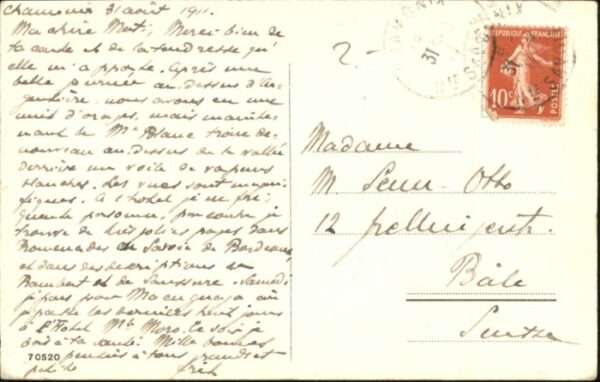 Chamonix 31 août 1911.
Ma chère Merti, Merci bien de
ta carte et de la tendresse qu'
elle m'apporte. Après une
belle journée au-dessus d'Ar-
gentière nous avons eu une
nuit d'orages, mais mainte-
nant le Mt Blanc trône de
nouveau au-dessus de la vallée
derrière un voile de vapeurs
blanches. Les vues sont magni-
fiques. A l'hôtel je ne fré-
quente personne, par contre je
trouve de très jolies pages dans
Promenades en Savoie de Bordeaux,
et dans des descriptions de
Rambert et de Saussure. Samedi
je pars pour Macugnaga où
je passe les derniers huit jours
à l'Hotel Mte Moro. Ce soir je
bois à ta santé. Mille bonnes
pensées à tous, grands et
petits
70520
CHAMONIX
31
RÉPUBLIQUE FRANÇAISE
10c
POSTES
Madame
M. Senn-Otto
12
Bâle
Suisse